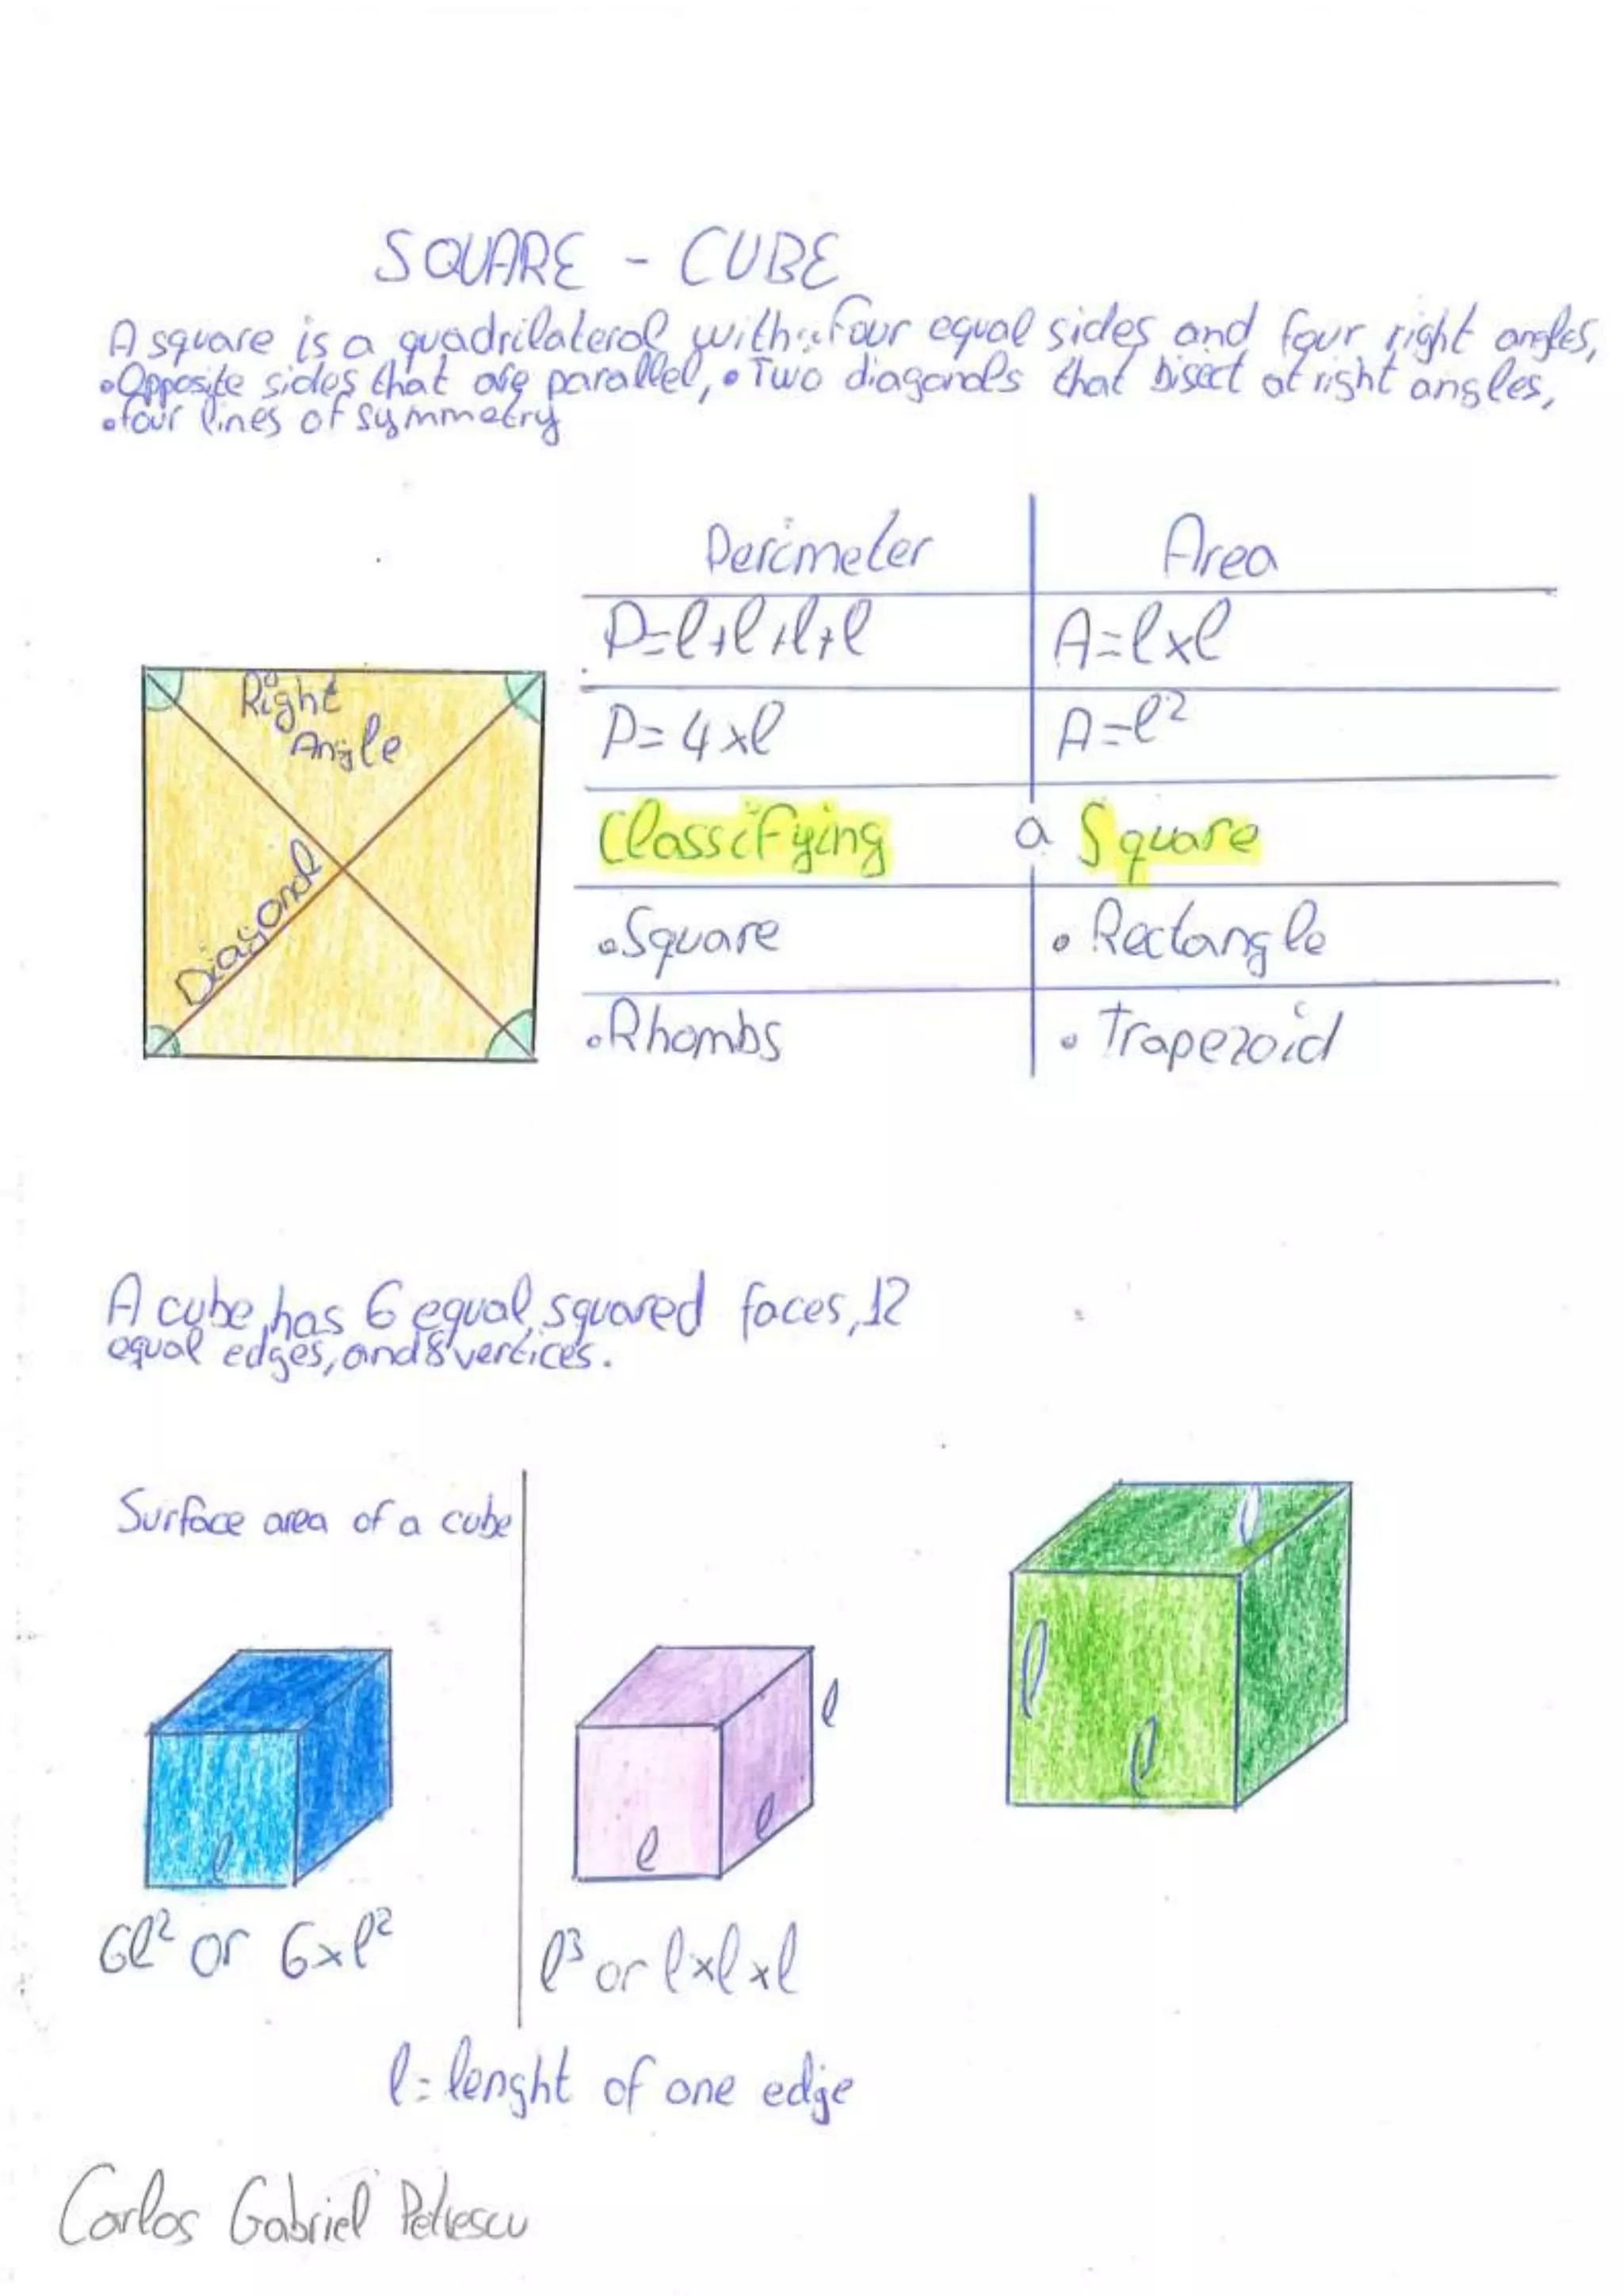 SQUARE - CUBE
A square is a quadrilateral with: four equal sides and four right angles,
•Opposite sides that are parallel, • Two diagonals that bisect at right angles,
•four lines of symmetry
Perimeter Area
P=l+l+l+l A=l×l
P=4×l A=l²
Classifying a Square
•Square • Rectangle
•Rhombs • Trapezoid
Right
Angle
Diagonal
A cube has 6 equal, squared faces, 12
equal edges, and 8 vertices.
Surface area of a cube
l
l
l
l
l
l
l
6l² or 6×l² l³ or l×l×l
l= lenght of one edge
Carlos Gabriel Petrescu